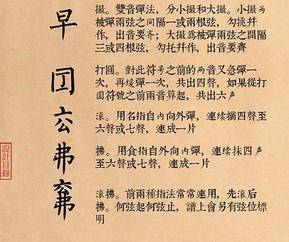 早
撮。雙音彈法，分小撮和大撮。小撮
為被彈兩弦之间隔一或兩根弦，勾挑并
作，出音要齊；大撮為被彈兩弦之間隔
三或四根弦，勾托并作，出音要齊
打圓。對此符号之前的两音又急彈一
次，再緩彈一次，共出四聲，如果從打
圆符號之前兩音算起，共出六声
滾。用名指自内向外彈，連續摘四聲至
六聲或七聲，連成一片
弗
拂。用食指自外向内彈，連續抹四声
至六聲或七聲，連成一片
滾拂。前兩種指法常常連用，先滾后
拂。何弦起何弦止，譜上會另有弦位標
明